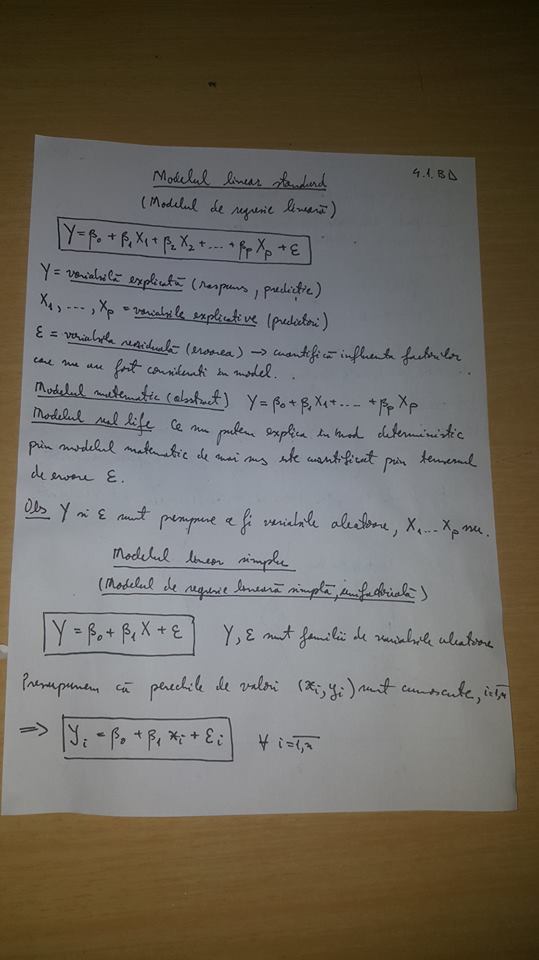 Modelul linear standard
4.1.BD
(Modelul de regresie lineară)
Y = β₀ + β₁X₁ + β₂X₂ + ... + βₚXₚ + ε
Y = variabilă explicată (raspuns, predicție)
X₁, ..., Xₚ = variabile explicative (predictori)
ε = variabila residuală (eroarea) → cuantifică influenta factorilor
care nu au fost considerati in model.
Modelul matematic (abstract) Y = β₀ + β₁X₁ + ... + βₚXₚ
Modelul real life Ce nu putem explica in mod deterministic
prin modelul matematic de mai sus este cuantificat prin termenul
de eroare ε.
Obs Y si ε sunt presupuse a fi variabile aleatoare, X₁...Xₚ nu.
Modelul linear simplu
(Modelul de regresie lineară simplă, unifactorială)
Y = β₀ + β₁X + ε Y, ε sunt familii de variabile aleatoare
Presupunem că perechile de valori (xᵢ, yᵢ) sunt cunoscute, i=1,n
⇒ Yᵢ = β₀ + β₁xᵢ + εᵢ ∀ i=1,n